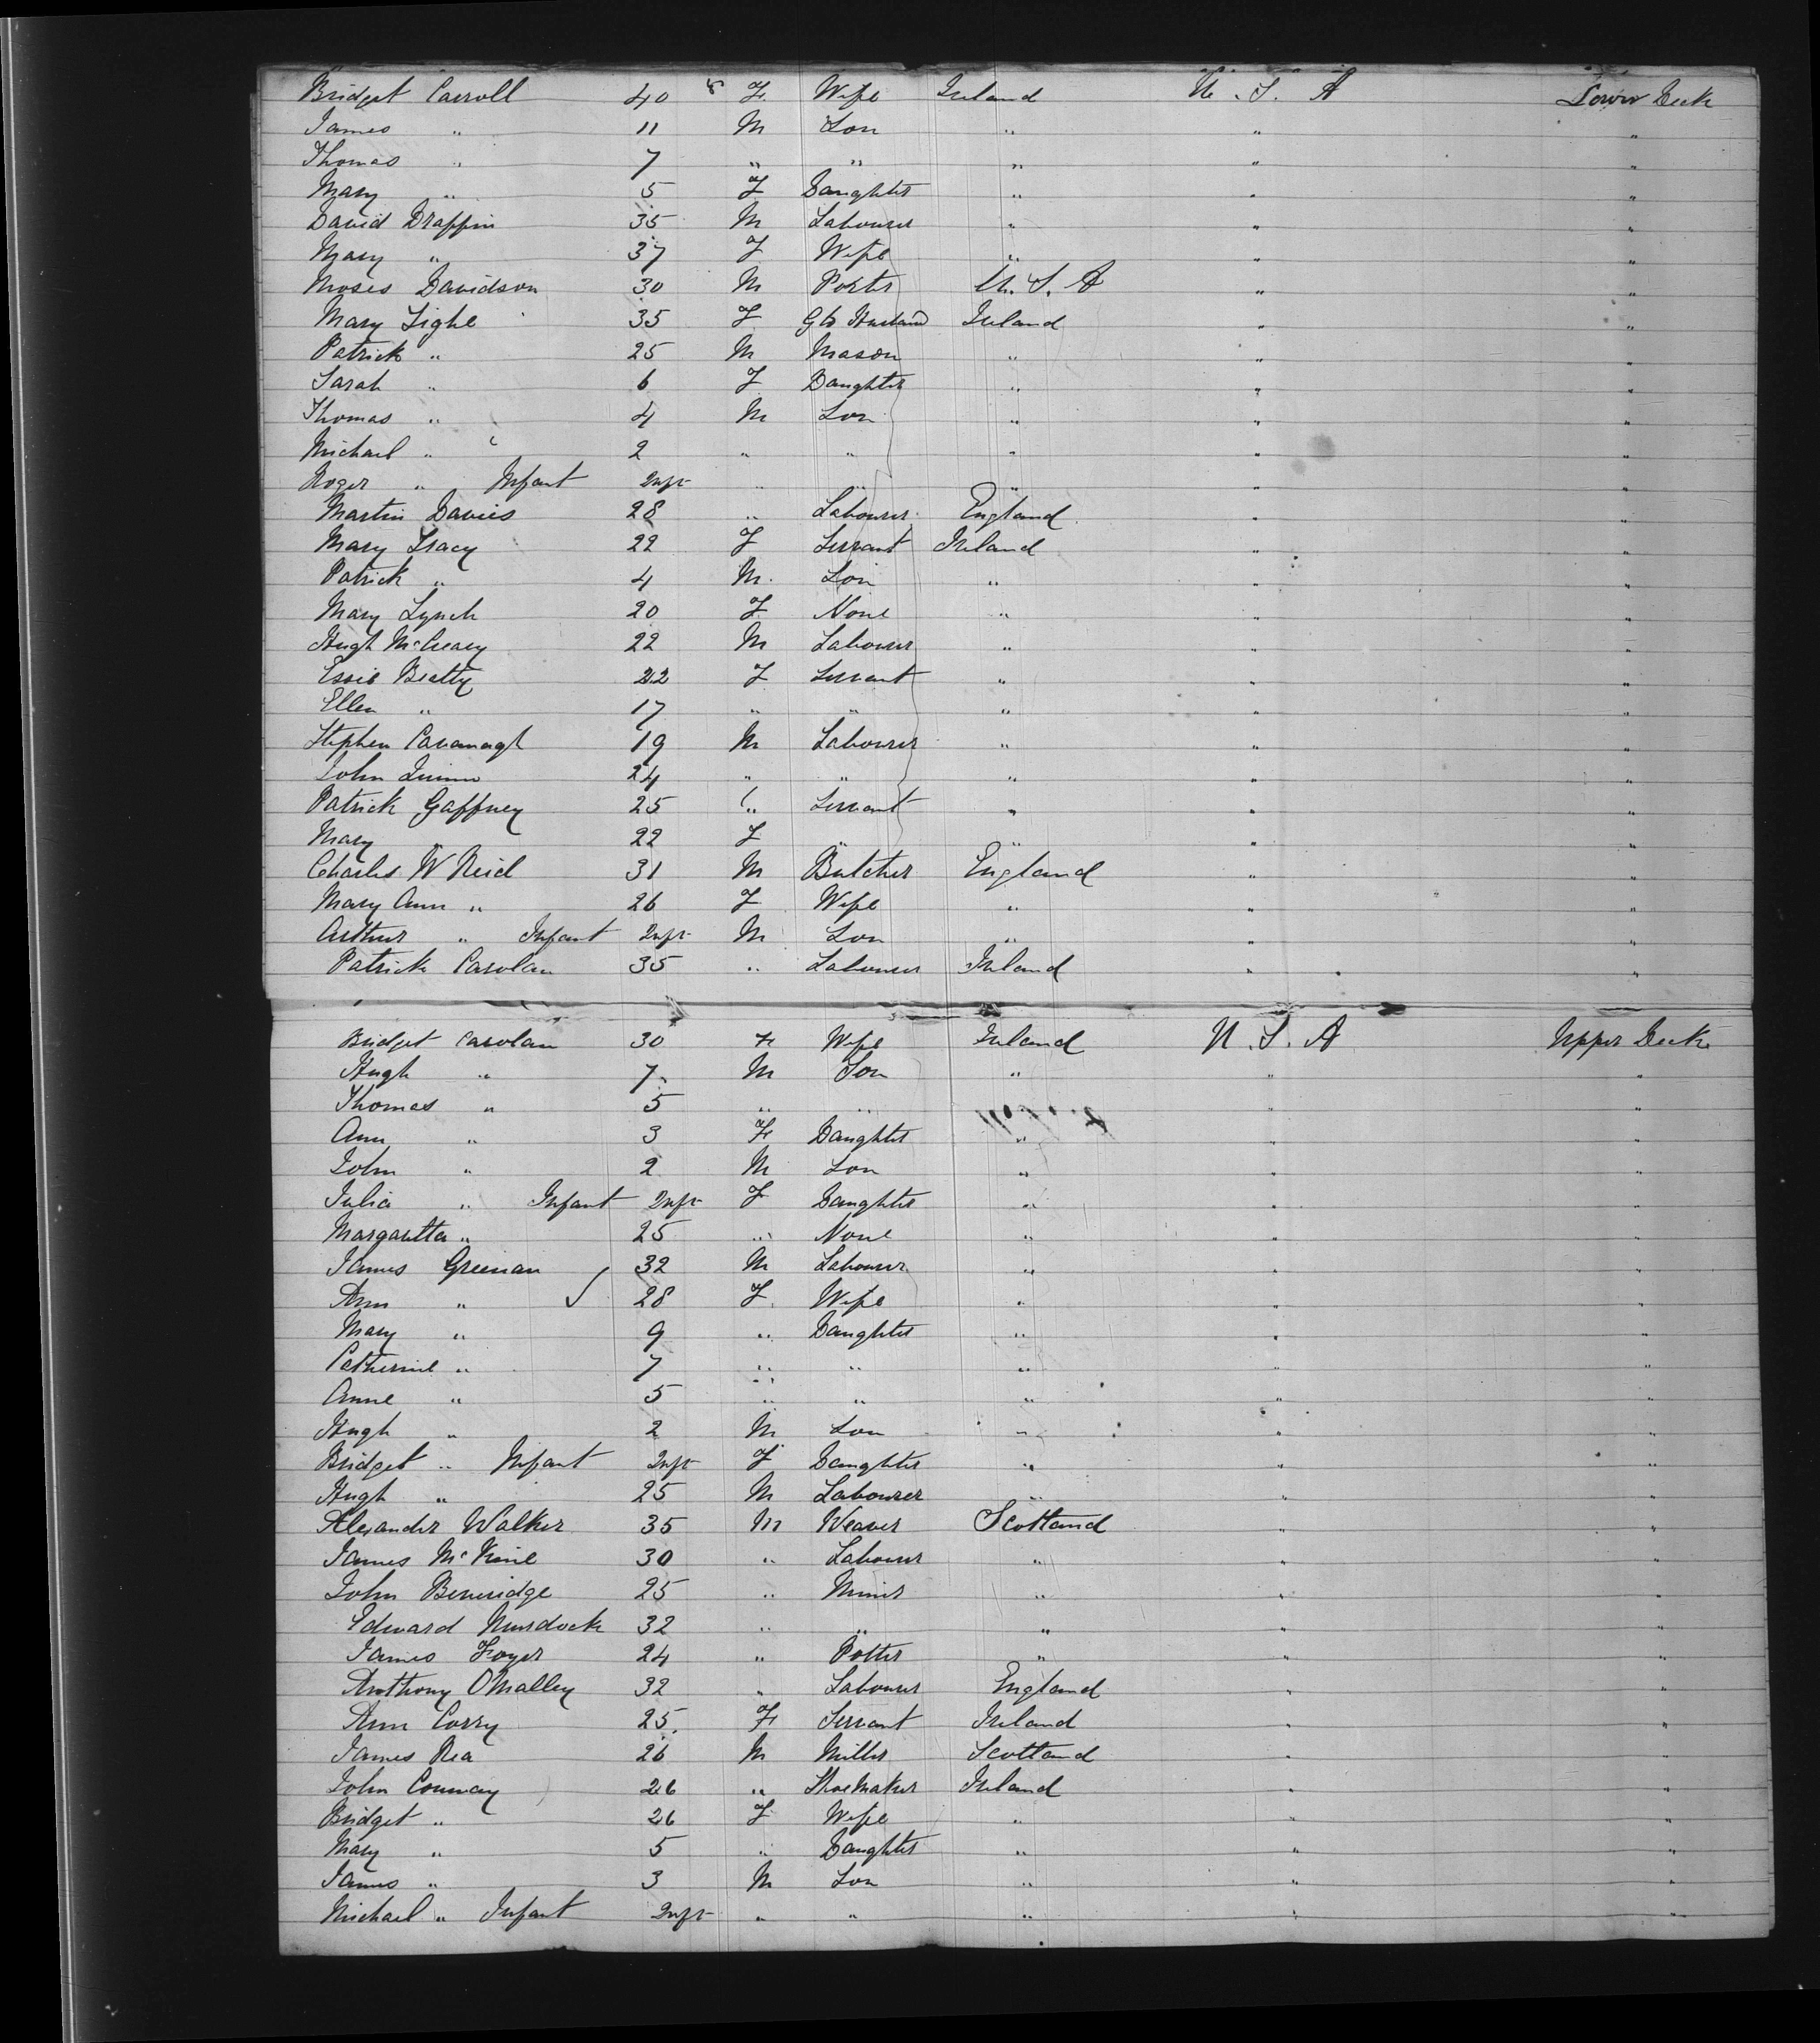 Bridget Carroll 40 F. Wife Ireland U. S. A Lower Deck
James " 11 M Son " " "
Thomas " 7 " " " " "
Mary " 5 F Daughter " " "
David Drappin 35 M Labourer " " "
Mary " 37 F Wife " " "
Moses Davidson 30 M Porter U. S. A " "
Mary Tighe 35 F G to Husband Ireland " "
Patrick " 25 M Mason " " "
Sarah " 6 F Daughter " " "
Thomas " 4 M Son " " "
Michael " 2 " " " " "
Roger " Infant Inft " " " " "
Martin Davies 28 " Labourer England " "
Mary Tracy 22 F Servant Ireland " "
Patrick " 4 M. Son " " "
Mary Lynch 20 F None " " "
Hugh McCreary 22 M Labourer " " "
Essie Beatty 22 F Servant " " "
Ellen " 17 " " " " "
Stephen Cavanagh 19 M Labourer " " "
John Quinn 24 " " " " "
Patrick Gaffney 25 " Servant " " "
Mary " 22 F " " " "
Charles W Reid 31 M Butcher England " "
Mary Ann " 26 F Wife " " "
Arthur " Infant Inft M Son " " "
Patrick Carolan 35 " Labourer Ireland " "
Bridget Carolan 30 F Wife Ireland U. S. A Upper Deck
Hugh " 7 M Son " " "
Thomas " 5 " " " "
Ann " 3 F Daughter " " "
John " 2 M Son " " "
Julia " Infant Inft F Daughter " " "
Margaretta " 25 " None " " "
James Greenan 32 M Labourer " " "
Ann " 28 F Wife " " "
Mary " 9 " Daughter " " "
Catherine " 7 " " " " "
Anne " 5 " " " " "
Hugh " 2 M Son " " "
Bridget " Infant Inft F Daughter " " "
Hugh " 25 M Labourer " " "
Alexander Walker 35 M Weaver Scotland " "
James McKine 30 " Labourer " " "
John Beveridge 25 " Miner " " "
Edward Murdock 32 " " " " "
James Foyer 24 " Potter " " "
Anthony O'Malley 32 " Labourer England " "
Ann Corry 25. F Servant Ireland " "
James Rea 26 M Miller Scotland " "
John Conway 26 " Shoemaker Ireland " "
Bridget " 26 F Wife " " "
Mary " 5 " Daughter " " "
James " 3 M Son " " "
Michael " Infant Inft " " " " "